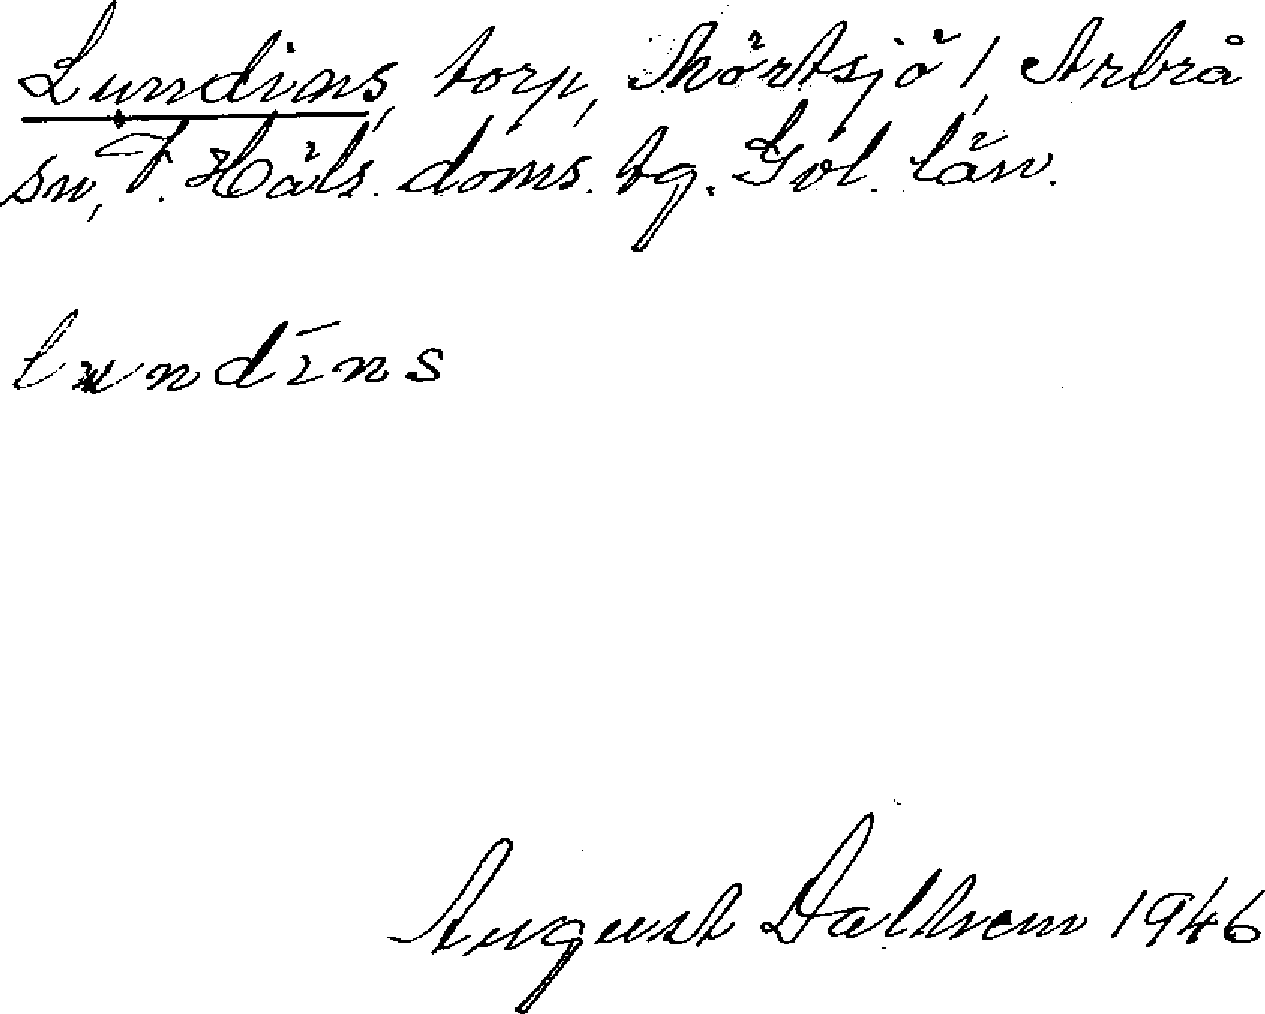 Lundins, torp, Mörtsjö 1, Arbrå
sn, V. Häls. doms. tg. Gvl. län.
lundīns
August Dalhem 1946